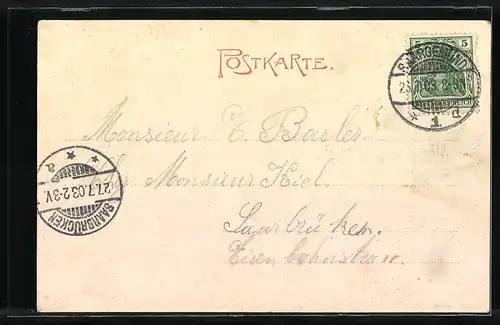 POSTKARTE.
5 5
SAARGEMÜND
26.7.03.8-9N
* 1 d
Monsieur E. Basler.
Chs Monsieur Kiel.
Saarbrücken.
Eisenbahnstrasse.
* * a
27.7.03.2-3V.
SAARBRÜCKEN